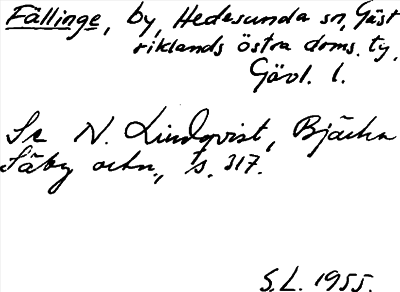 Fällinge, by, Hedesunda sn, Gäst
riklands östra doms. tg,
Gävl. l.
Se N. Lindqvist, Bjärka
Säby ortn., s. 317.
S.L. 1955.